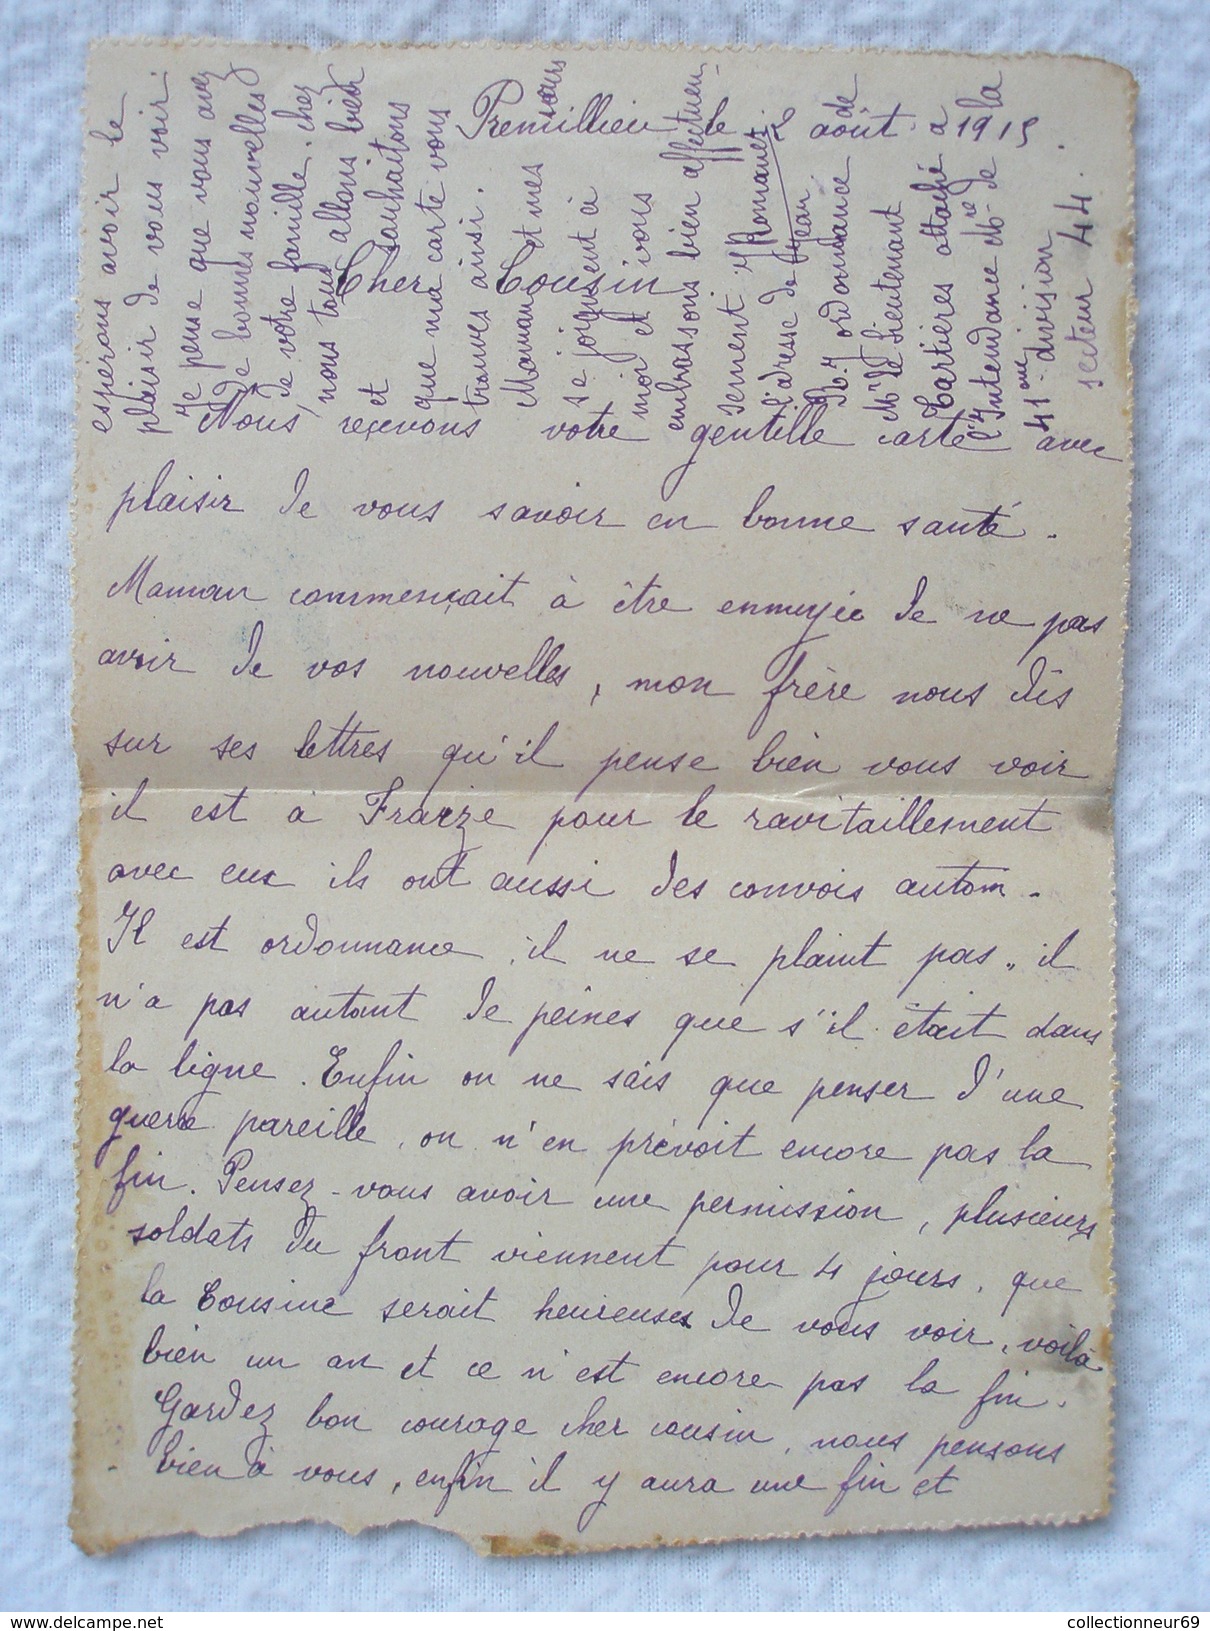 Premillieu le 2 août 1915.
Cher Cousin
Nous reçevons votre gentille carte avec
plaisir de vous savoir en bonne santé.
Maman commençait à être ennuyée de ne pas
avoir de vos nouvelles, mon frère nous dis
sur ses lettres qu'il pense bien vous voir
il est à Fraize pour le ravitaillement
avec eux ils ont aussi des convois autom.
Il est ordonnance, il ne se plaint pas, il
n'a pas autant de peines que s'il était dans
la ligne. Enfin on ne sais que penser d'une
guerre pareille, on n'en prévoit encore pas la
fin. Pensez-vous avoir une permission, plusieurs
soldats du front viennent pour 4 jours, que
la Cousine serait heureuses de vous voir, voilà
bien un an et ce n'est encore pas la fin.
Gardez bon courage cher cousin, nous pensons
bien à vous, enfin il y aura une fin et
esperons avoir le
plaisir de vous voir
Je pense que vous avez
de bonnes nouvelles
de votre famille, chez
nous tous allons bien
et souhaitons
que ma carte vous
trouves ainsi.
Maman et mes sœurs
se joignent à
moi et vous
embrassons bien affectueu-
sement Y Romanet
l'adresse de Jean
R. J ordonnance de
Mr le Lieutenant
Tartières attaché a
l'Intendance Mre de la
41eme division
secteur 44.
collectionneur69